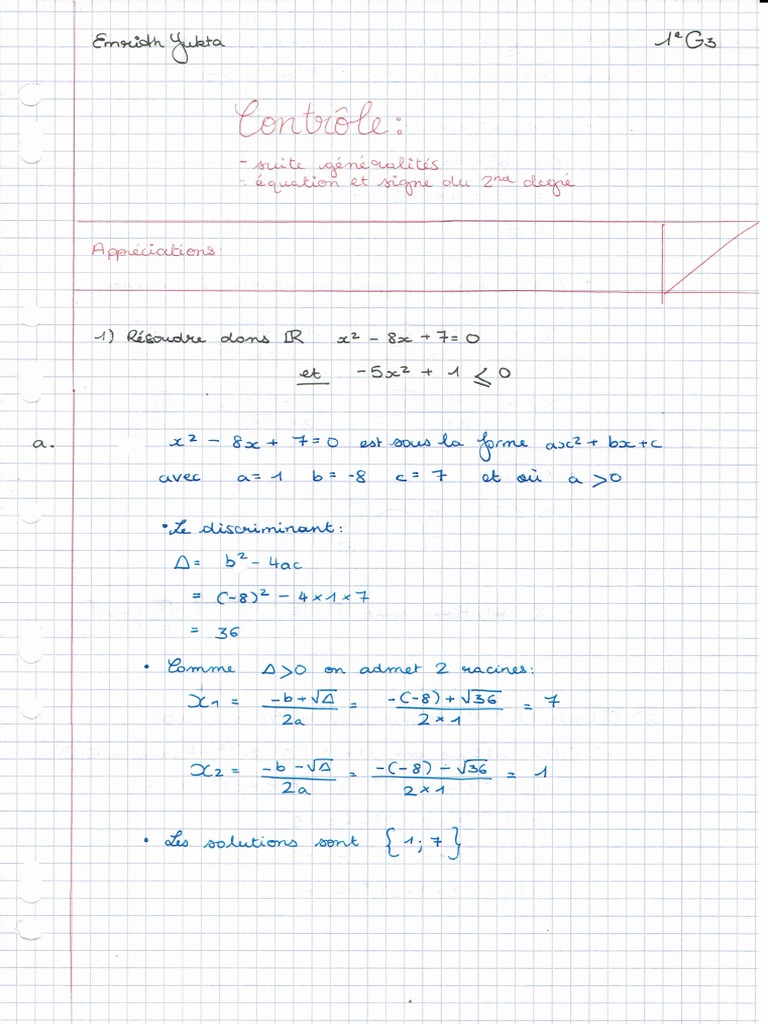 Emrith Yukta 1e G3
Contrôle:
- suite généralités
- équation et signe du 2nd degré
Appréciations:
1) Résoudre dans ℝ x² - 8x + 7 = 0
et -5x² + 1 ⩽ 0
a. x² - 8x + 7 = 0 est sous la forme ax² + bx + c
avec a = 1 b = -8 c = 7 et où a > 0
• Le discriminant:
Δ = b² - 4ac
= (-8)² - 4 × 1 × 7
= 36
• Comme Δ > 0 on admet 2 racines:
x₁ = (-b + √Δ)/(2a) = (-(-8) + √36)/(2 × 1) = 7
x₂ = (-b - √Δ)/(2a) = (-(-8) - √36)/(2 × 1) = 1
• Les solutions sont {1; 7}